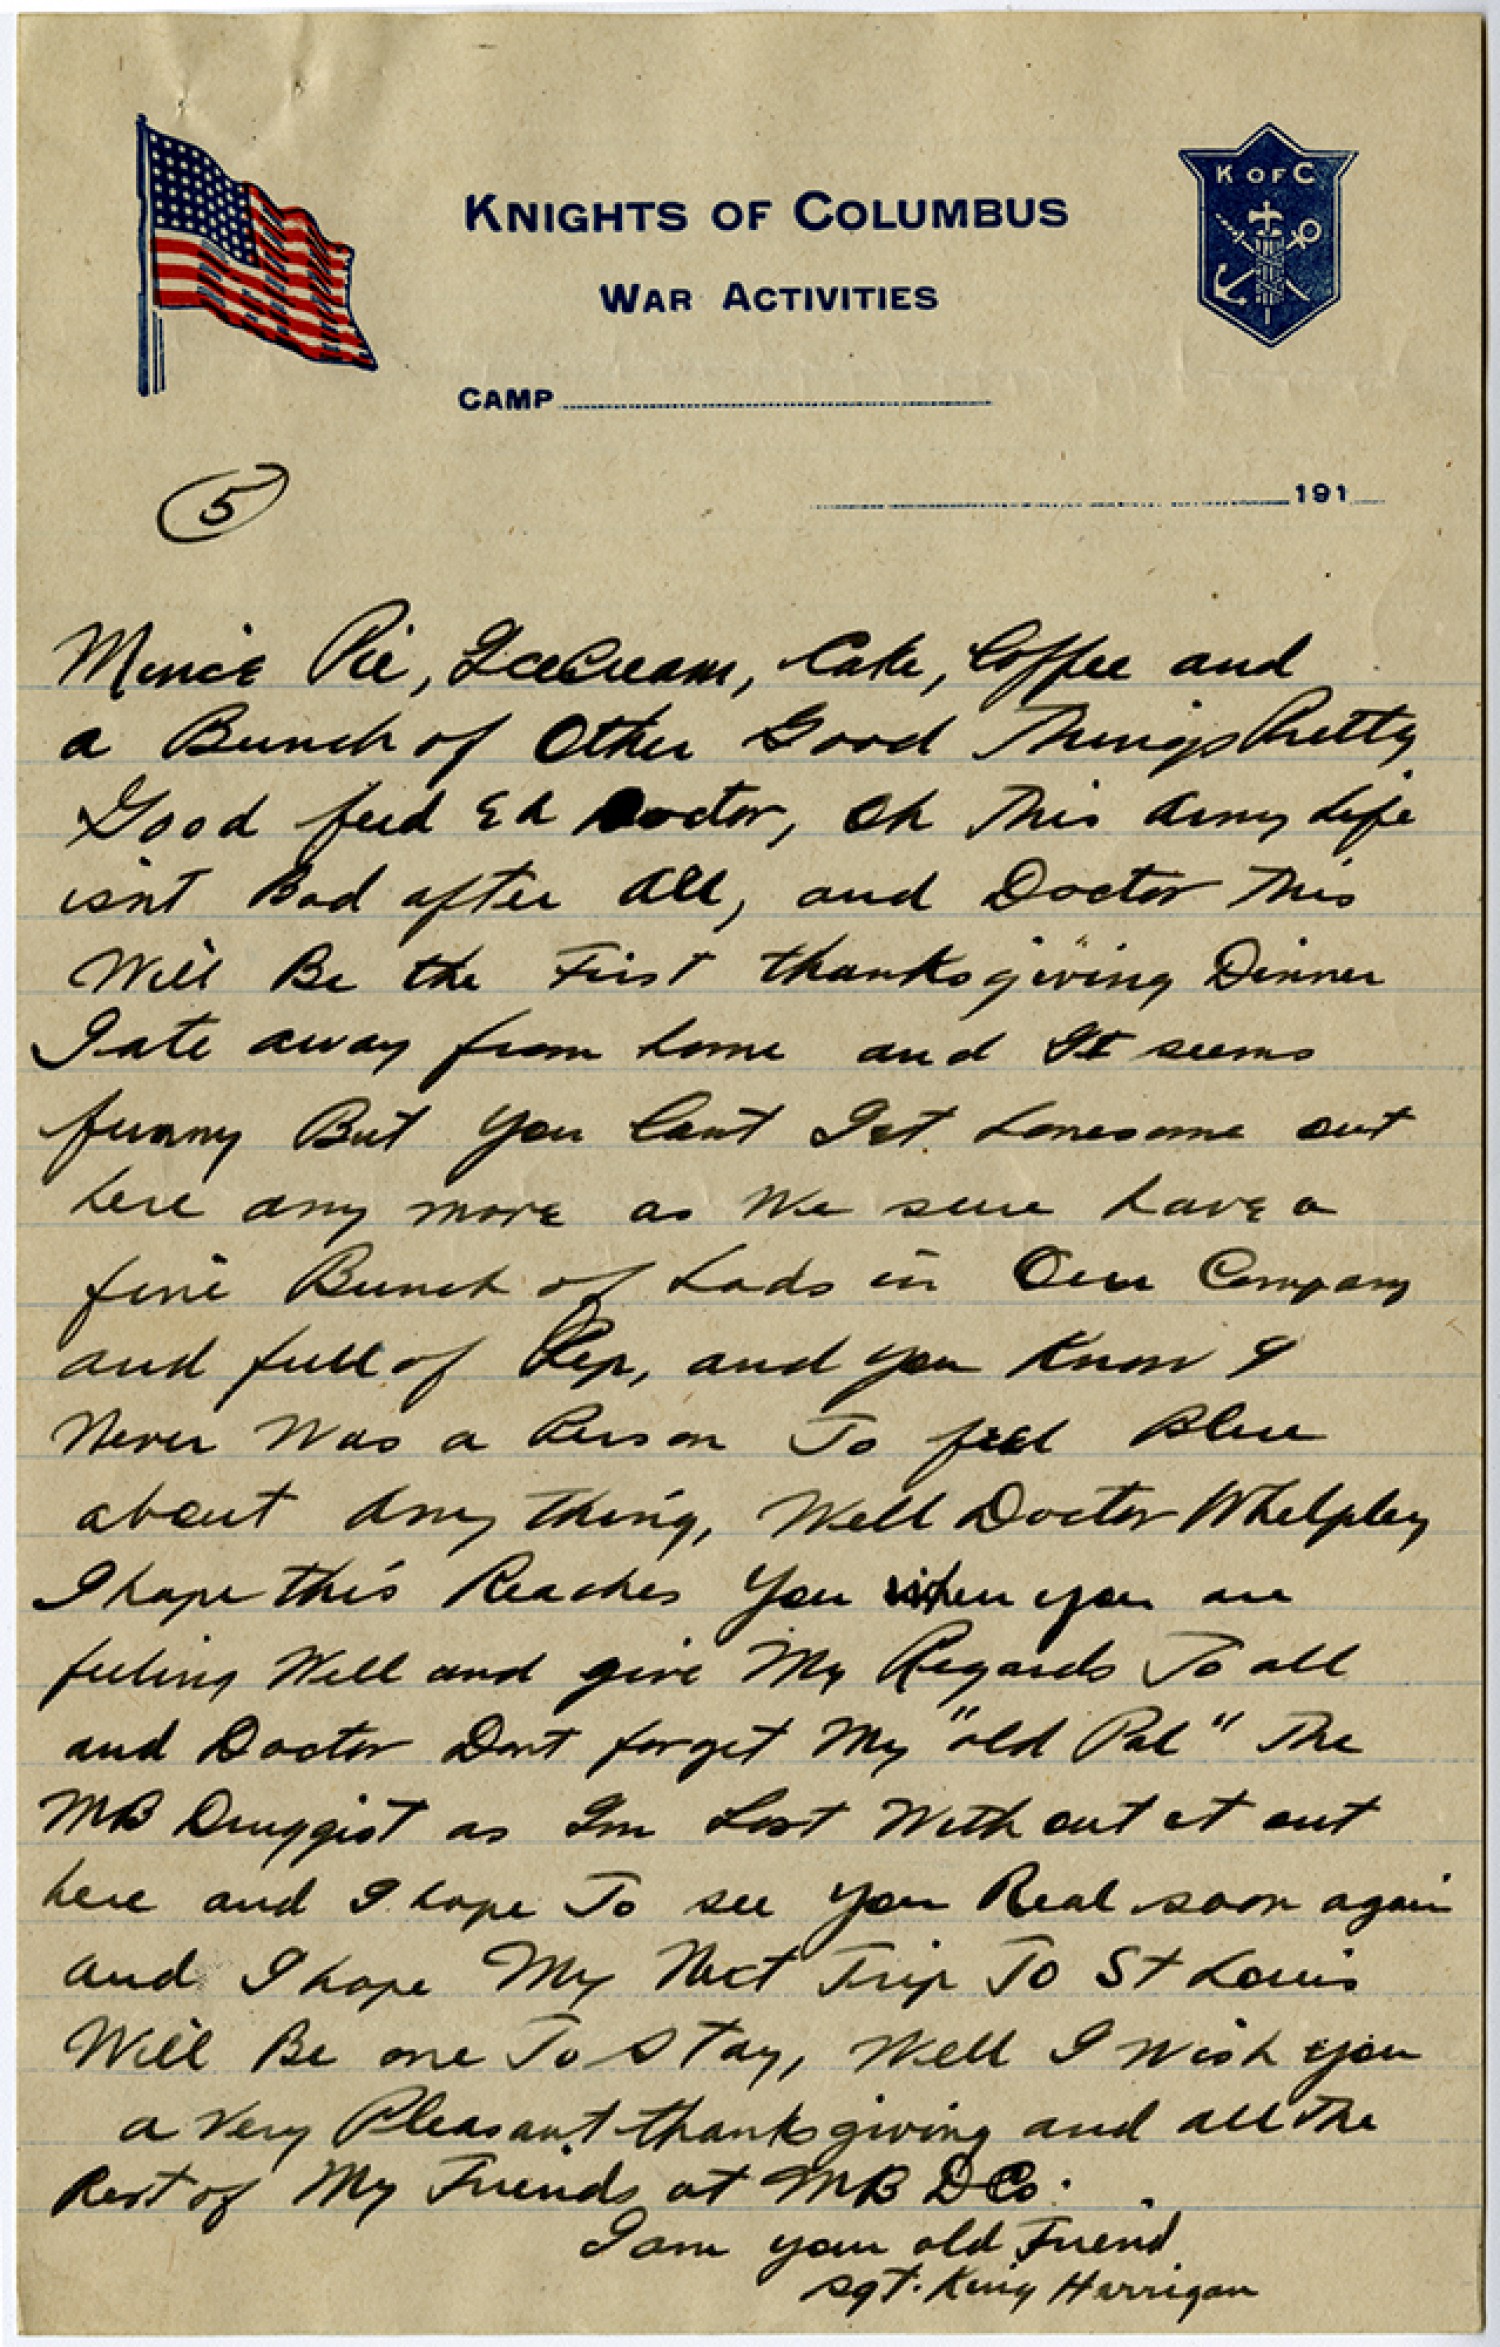 KNIGHTS OF COLUMBUS
WAR ACTIVITIES
K OF C
CAMP
191
5
Mince Pie, IceCream, Cake, Coffee and
a Bunch of Other Good Things Pretty
Good feed Eh Doctor, Oh This Army Life
isnt Bad after All, and Doctor This
Will Be the First thanksgiving Dinner
I ate away from home and It seems
funny But you Cant Get Lonesome out
here any more as We sure have a
fine Bunch of Lads in Our Company
and full of Pep, and you Know I
Never Was a Person To feel Blue
about Any thing, Well Doctor Whelpley
I hope this Reaches You when you are
feeling Well and give My Regards To all
and Doctor Dont forget My "old Pal" The
MB Druggist as Im Lost With out it out
here and I hope To see you Real soon again
and I hope My Next Trip To St Louis
Will Be one To Stay, Well I Wish you
a Very Pleasant thanksgiving and all The
Rest of My Friends at MB D Co.
I am your old Friend
Sgt. King Harrigan